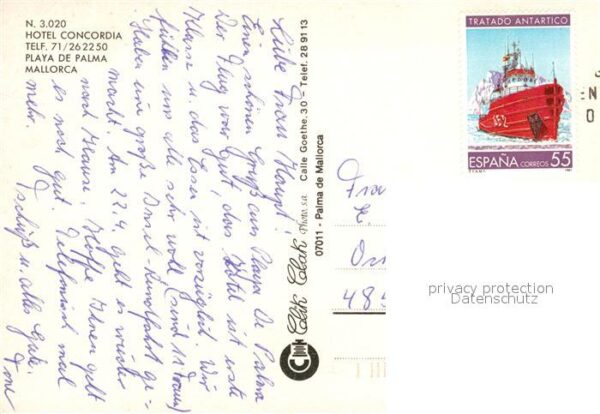 N. 3.020
HOTEL CONCORDIA
TELF. 71/262250
PLAYA DE PALMA
MALLORCA
Liebe Frau Haupt!
Einen schönen Gruß aus Playa de Palma
Der Flug war gut, das Hotel ist erste
Klasse u. das Essen ist vorzüglich. Wir
fühlen uns alle sehr wohl (sind 11 Frauen)
Haben eine große Insel-Rundfahrt ge-
macht. Am 22.4 geht es wieder
nach Hause. Hoffe Ihnen geht
es noch gut. Telefonisch mal
mehr.
Tschüß u. alles Gute.
Clik Clak Photo, s.a. Calle Goethe, 30 - Telef. 28 91 13
07011 - Palma de Mallorca
Frau
48
TRATADO ANTARTICO
A52
ESPAÑA CORREOS 55
privacy protection
Datenschutz